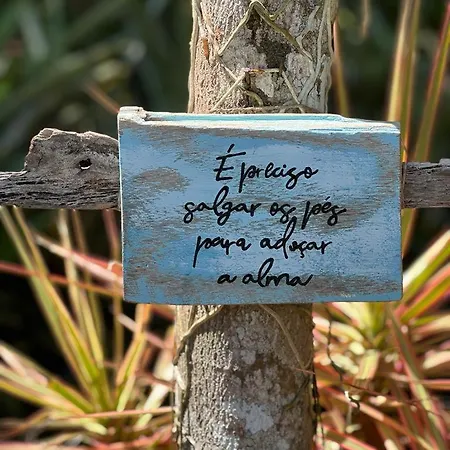 É preciso
salgar os pés
para adoçar
a alma